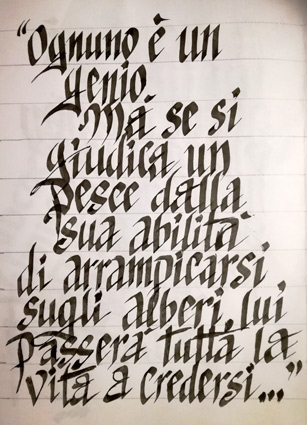 “Ognuno è un
genio.
Ma se si
giudica un
pesce dalla
sua abilità
di arrampicarsi
sugli alberi, lui
passerà tutta la
vita a credersi...”